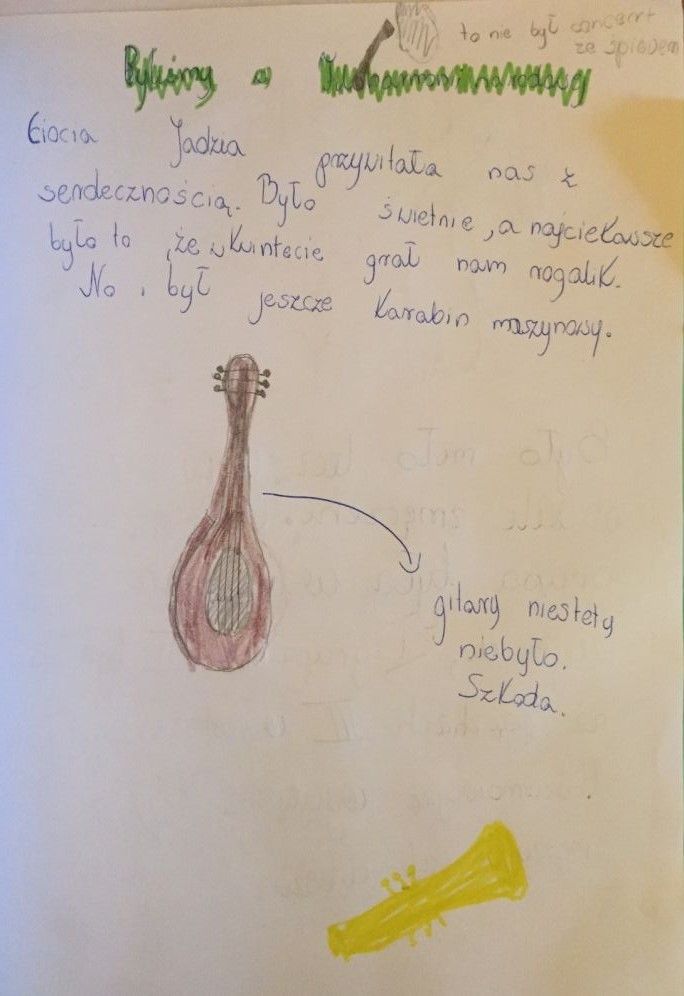 to nie był concert
ze śpiewem
Byliśmy w
Ciocia Jadzia przywitała nas z
serdecznością. Było świetnie, a najciekawsze
było to, że w kwintecie grał nam rogalik.
No i był jeszcze karabin maszynowy.
gitary niestety
niebyło.
Szkoda.